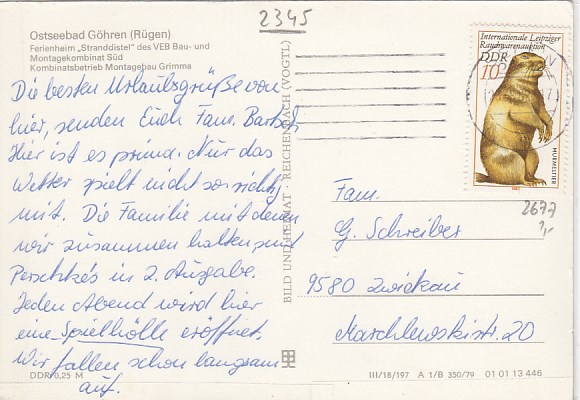 2345
Ostseebad Göhren (Rügen)
Ferienheim „Stranddistel" des VEB Bau- und
Montagekombinat Süd
Kombinatsbetrieb Montagebau Grimma
Die besten Urlaubsgrüße von
hier, senden Euch Fam. Bartsch
Hier ist es prima. Nur das
Wetter spielt nicht so richtig
mit. Die Familie mit denen
wir zusammen halten, sind
in 2. Ausgabe.
Jeden Abend wird hier
eine Spielhölle eröffnet.
Wir fallen schon langsam
auf.
DDR 0,25 M
BILD UND HEIMAT · REICHENBACH (VOGTL)
Internationale Leipziger
Rauchwarenauktion
DDR
10
MURMELTIER
1982
2677
Fam.
G. Schreiber
9580 Zwickau
Marchlewskistr. 20
III/18/197 A 1/B 350/79 01 01 13 446